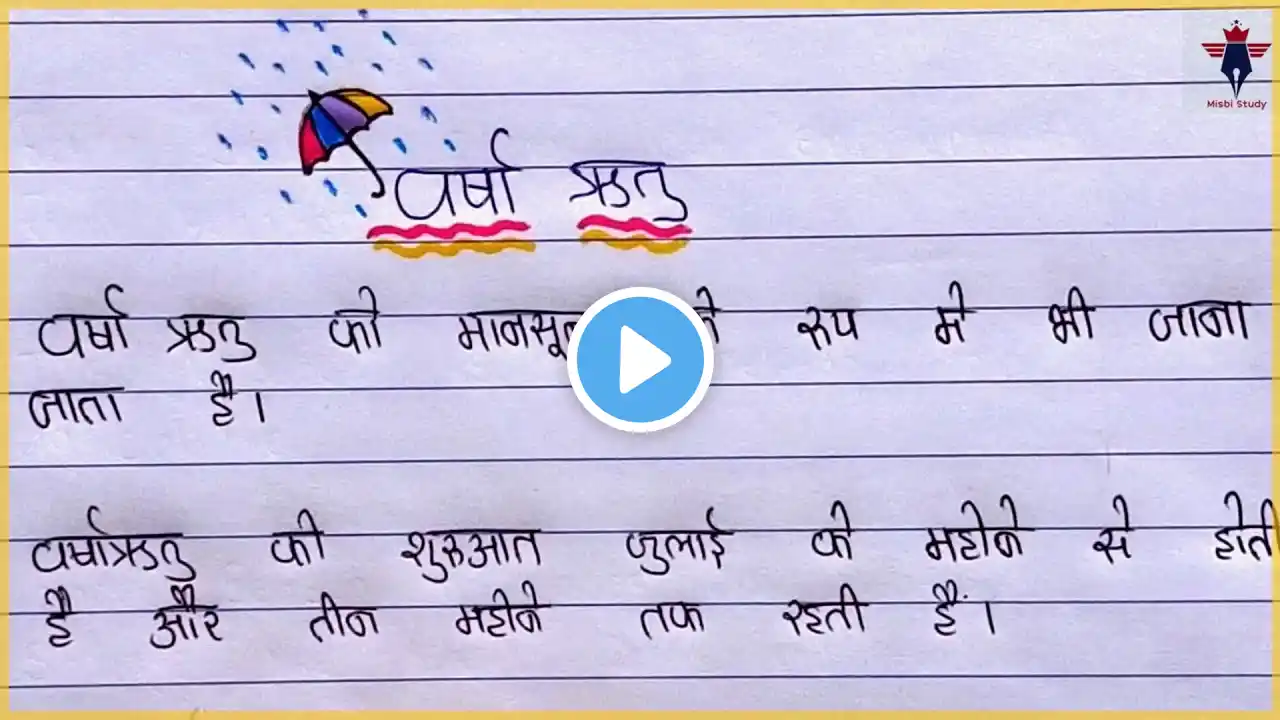 Misbi Study
वर्षा ऋतु
वर्षा ऋतु को मानसू रूप मे भी जाना
जाता है।
वर्षाऋतु की शुरुआत जुलाई के महीने से होती
है और तीन महीने तक रहती हैं।